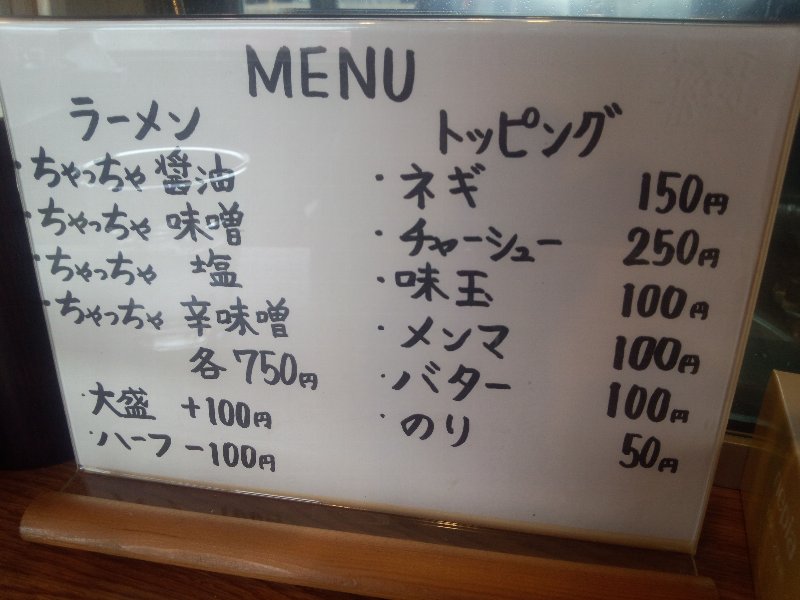 MENU
ラーメン
・ちゃっちゃ 醤油
・ちゃっちゃ 味噌
・ちゃっちゃ 塩
・ちゃっちゃ 辛味噌
各750円
・大盛 +100円
・ハーフ -100円
トッピング
・ネギ 150円
・チャーシュー 250円
・味玉 100円
・メンマ 100円
・バター 100円
・のり 50円